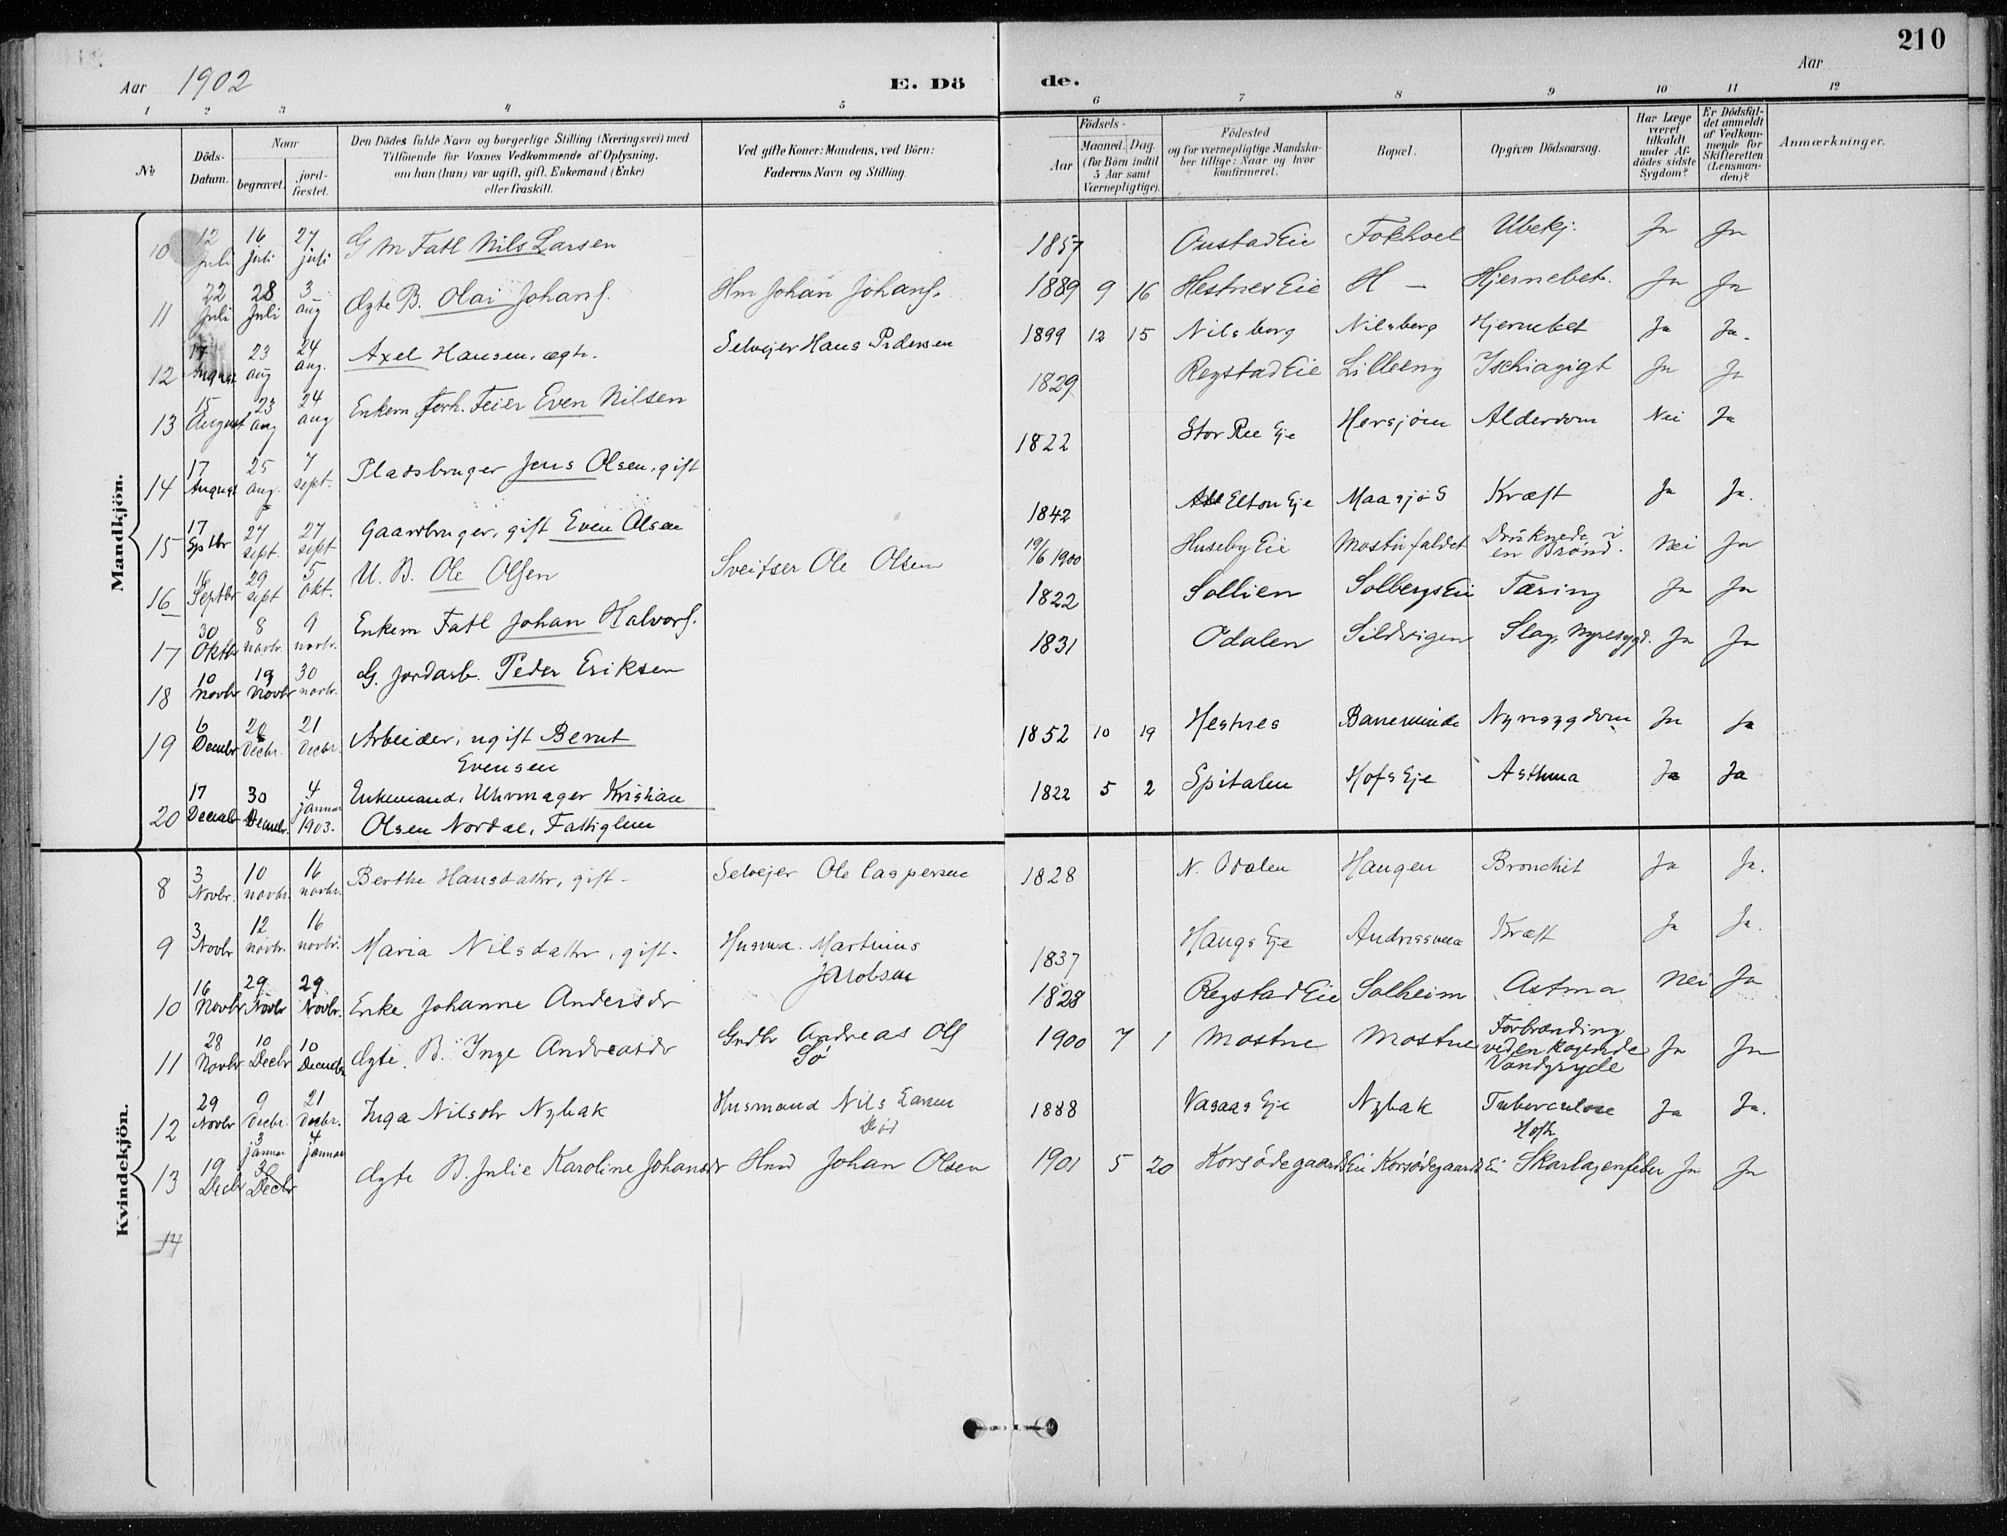 210
Aar 1902
E. Dö
de.
Aar
1 2 3 4 5 6 7 8 9 10 11 12
No
Döds-Datum.
Naar
begravet.
jord-fæstet.
Den Dödes fulde Navn og borgerlige Stilling (Næringsvei) med
Tilföiende for Voxnes Vedkommende af Oplysning,
om han (hun) var ugift, gift, Enkemand (Enke)
eller fraskilt.
Ved gifte Koner: Mandens, ved Börn:
Faderens Navn og Stilling.
Födsels-
Aar
Maaned. Dag.
(for Börn indtil
5 Aar samt
Værnepligtige).
Födested
og for værnepligtige Mandska-
ber tillige: Naar og hvor
konfirmeret.
Bopæl.
Opgiven Dödsaarsag.
Har Læge
været
tilkaldt
under Af-
dödes sidste
Sygdom?
Er Dödsfal-
det anmeldt
af Vedkom-
mende for
Skifteretten
(Lensman-
den)?
Anmærkninger.
Mandkjön.
10 12 Juli 16 Juli 27 Juli G M Fatl Nils Larsen 1857 Onstad Eie Fokhoel Ubekj. Ja Ja
11 22 Juli 28 Juli 3 aug Ægte B. Olai Johans. Hm Johan Johans. 1889 9 16 Hestnes Eie H — Hjernebet. Ja Ja
12 17 August 23 aug 24 aug. Axel Hansen, ægte. Selvejer Hans Pedersen 1899 12 15 Nilsberg Nilsberg Hjernebet Ja Ja.
13 15 August 23 aug 24 aug Enkem. forh. Feier Even Nilsen 1829 Regstad Eie Lilleeng Ischiagigt Ja Ja
14 17 August 25 aug. 7 sept. Pladsbruger Jens Olsen, gift 1822 Stor Ree Eje Hersjöen Alderdom Nei Ja
15 17 Sptbr 27 sept. 27 sept Gaardbruger, gift Even Olsen 1842 Elton Eje Maasjö S Kræft Ja Ja.
16 16 Septbr 29 sept 5 okt. U. B. Ole Olsen Sveitser Ole Olsen 19/6 1900 Huseby Eie Mostufaldet Druknede i
en Brönd. Nei Ja
17 30 Oktbr 8 novbr. 9 novbr. Enkem Fatl Johan Halvors. 1822 Sollien Solbergs Eie Tæring Ja Ja
18 10 Novbr 19 Novbr 30 novbr. G. Jordarb. Peder Eriksen 1831 Odalen Sildvigen Slag, Nyresygd. Ja Ja
19 6 Decmbr 20 Decbr. 21 Decbr. Arbeider, ugift Bernt
Evensen 1852 10 19 Hestnes Baneminde Nyresygdom Ja Ja
20 17 Decmbr 30 Decmbr. 4 januar 1903. Enkemand, Uhrmager Kristian
Olsen Nordal, Fattiglem 1822 5 2 Spitalen Hofs Eje Asthma Ja Ja
Kvindekjön.
8 3 Novbr. 10 novbr. 16 novbr. Berthe Hansdatter, gift - Selvejer Ole Caspersen 1828 N. Odalen Haugen Bronchit Ja Ja.
9 3 Novbr 12 novbr. 16 novbr. Maria Nilsdatter, gift - Husma. Martinius
Jacobsen 1837 Haugs Eje Kræft Ja Ja.
10 16 Novbr 29 Novbr 29 Novbr. Enke Johanne Andersdr 1828 Regstad Eie Solheim Astma Nei Ja
11 28 Novbr 10 Decbr 10 Decembr Ægte. B. Inge Andreasdr Grdbr Andreas Ols
Sö 1900 7 1 Mostue Mostue Forbrænding
ved en kogende
Vandgryde Ja Ja
12 29 Novbr 9 Decbr. 21 Decbr. Inga Nilsdtr Nybak Husmand Nils Larsen
Död 1888 Vasaas Eje Nybak Tuberculose
Hofte Ja Ja.
13 19 Decbr 3 januar 4 januar Ægte B. Julie Karoline Johansdr Hmd Johan Olsen 1901 5 20 Korsödegaards Eie Korsödegaards Ei Skarlagensfeber Ja Ja
14